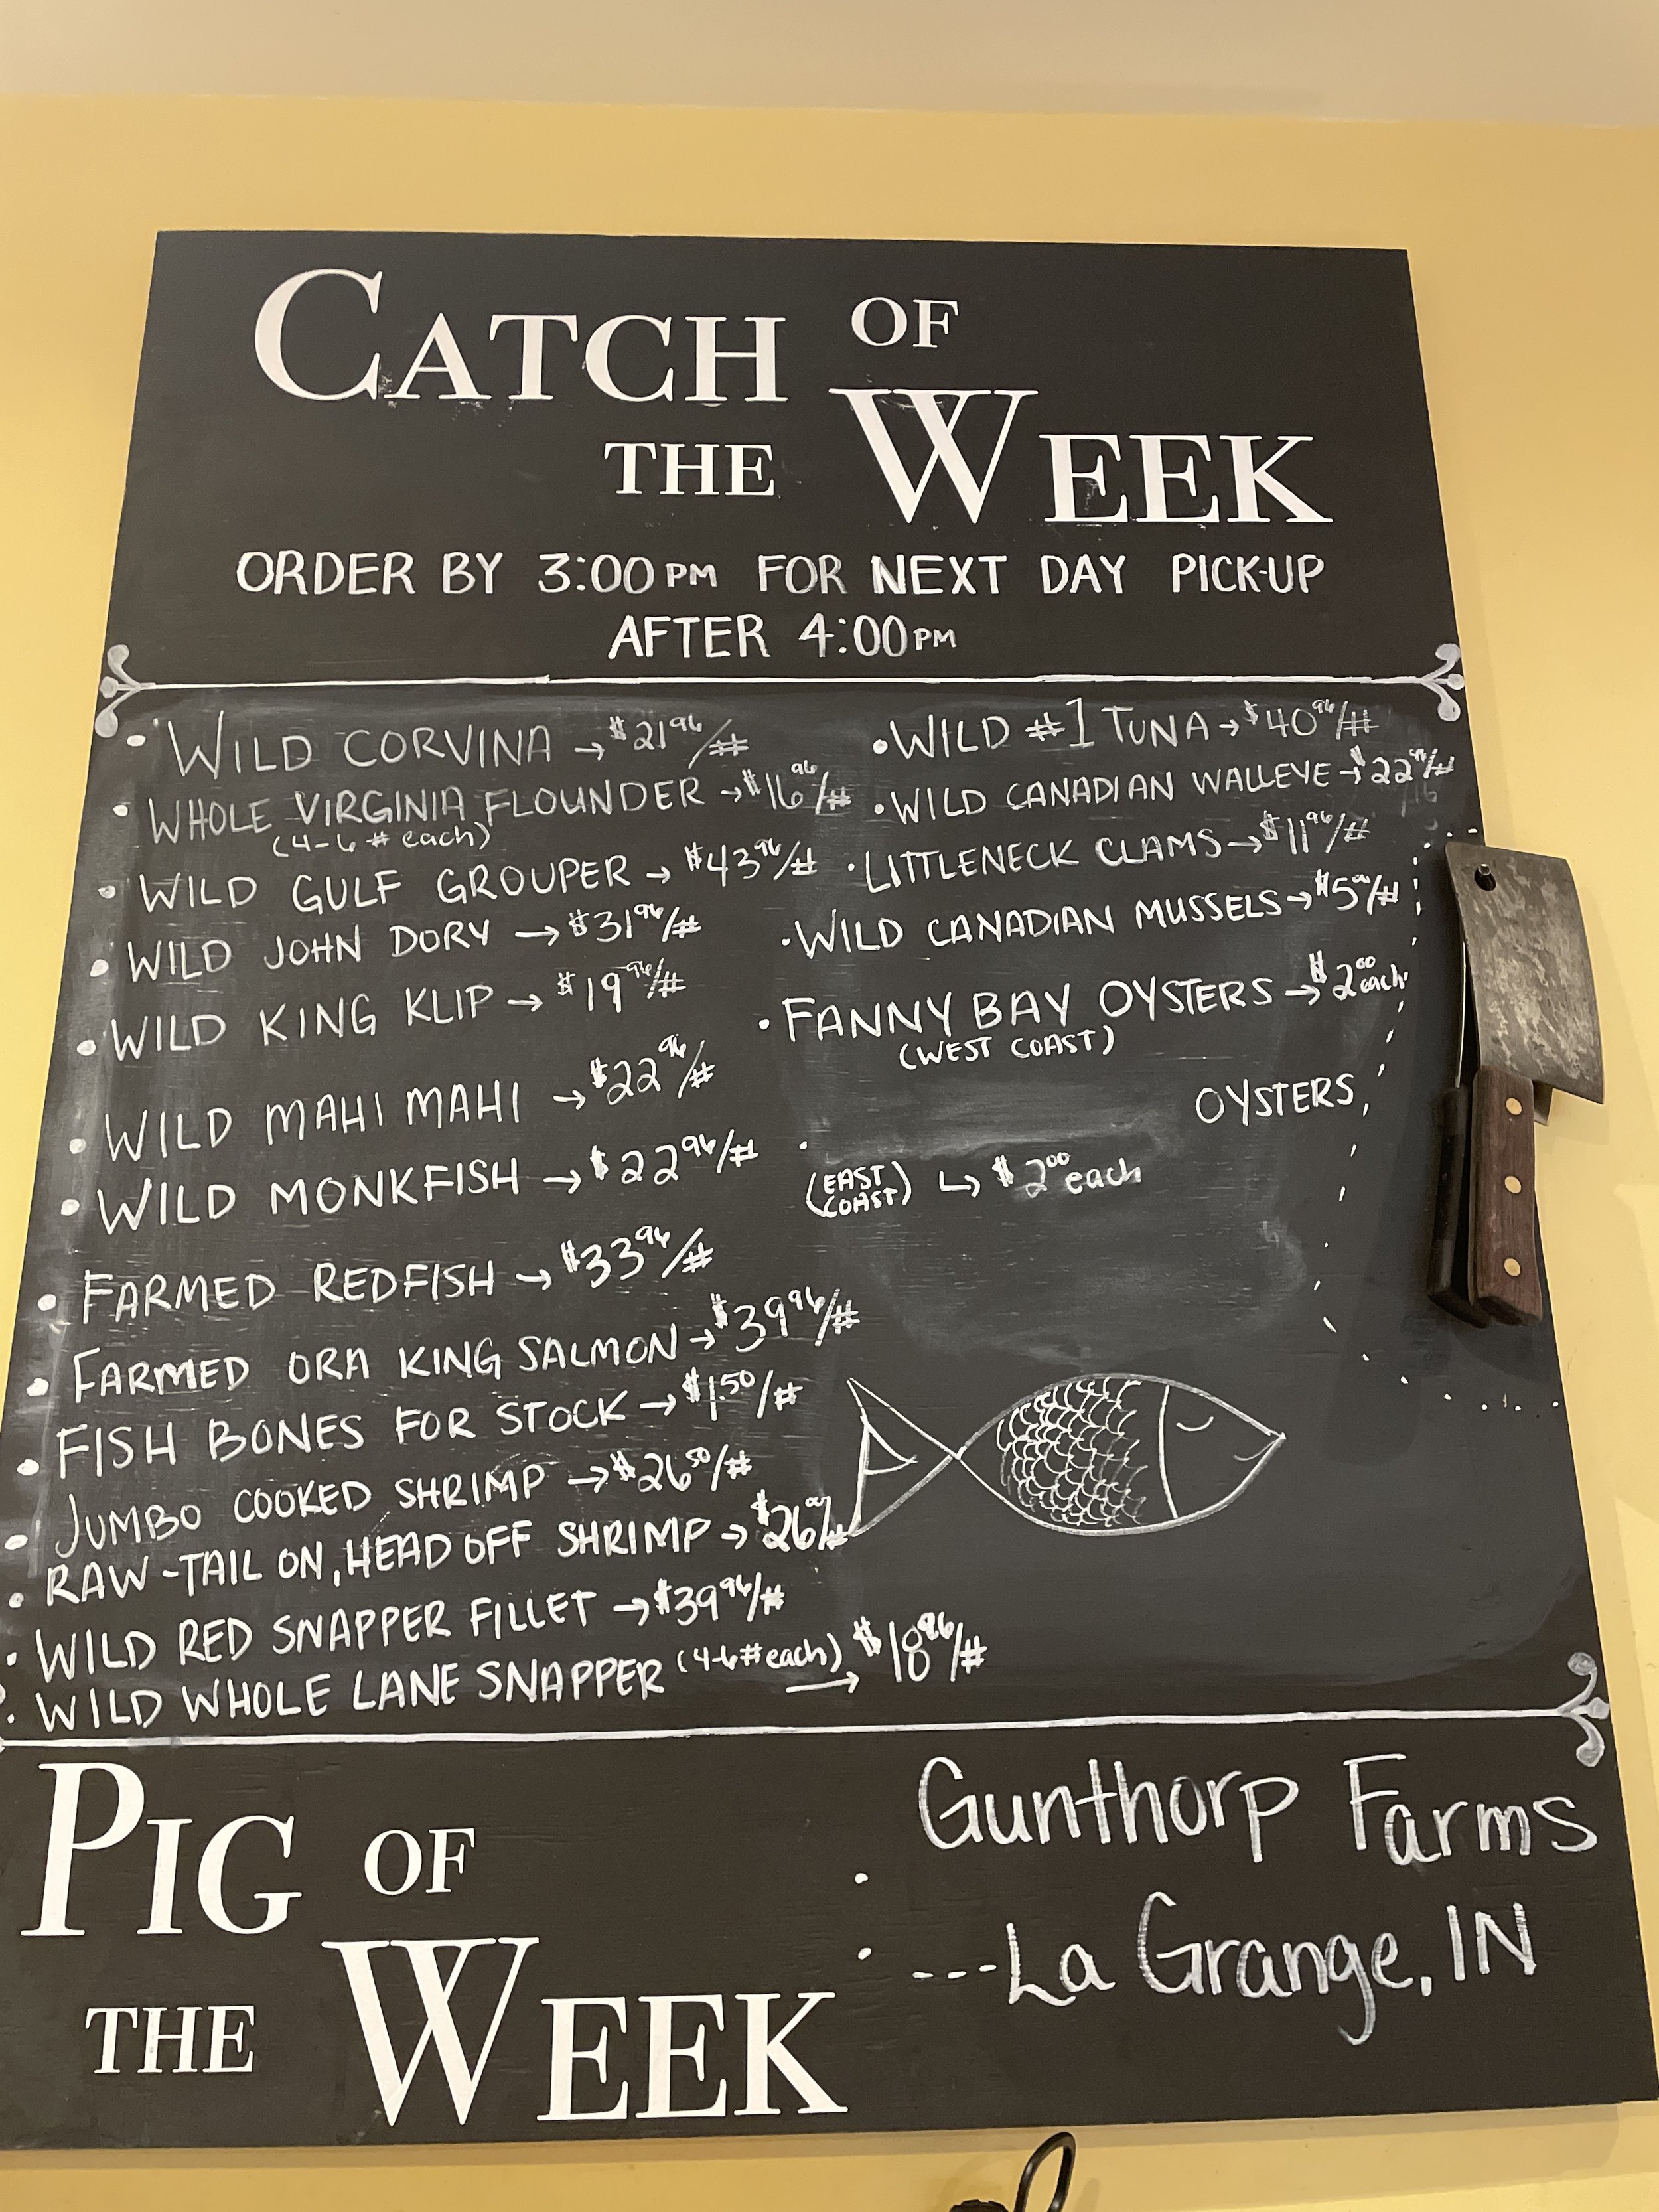 CATCH OF
THE WEEK
ORDER BY 3:00 PM FOR NEXT DAY PICK-UP
AFTER 4:00 PM
• WILD CORVINA → $21 96/#
• WHOLE VIRGINIA FLOUNDER → $16 96/#
(4-6 # each)
• WILD GULF GROUPER → $43 96/#
• WILD JOHN DORY → $31 96/#
• WILD KING KLIP → $19 96/#
• WILD MAHI MAHI → $22 96/#
• WILD MONKFISH → $22 96/#
• FARMED REDFISH → $33 96/#
• FARMED ORA KING SALMON → $39 96/#
• FISH BONES FOR STOCK → $1 50/#
• JUMBO COOKED SHRIMP → $26 50/#
• RAW-TAIL ON, HEAD OFF SHRIMP → $26 00/#
• WILD RED SNAPPER FILLET → $39 96/#
• WILD WHOLE LANE SNAPPER (4-6# each) → $18 96/#
• WILD #1 TUNA → $40 96/#
• WILD CANADIAN WALLEYE → $22 96/#
• LITTLENECK CLAMS → $11 96/#
• WILD CANADIAN MUSSELS → $5 00/#
• FANNY BAY OYSTERS → $2 00 each
(WEST COAST)
• OYSTERS,
(EAST COAST) ↳ $2 00 each
PIG OF
THE WEEK
Gunthorp Farms
---La Grange, IN